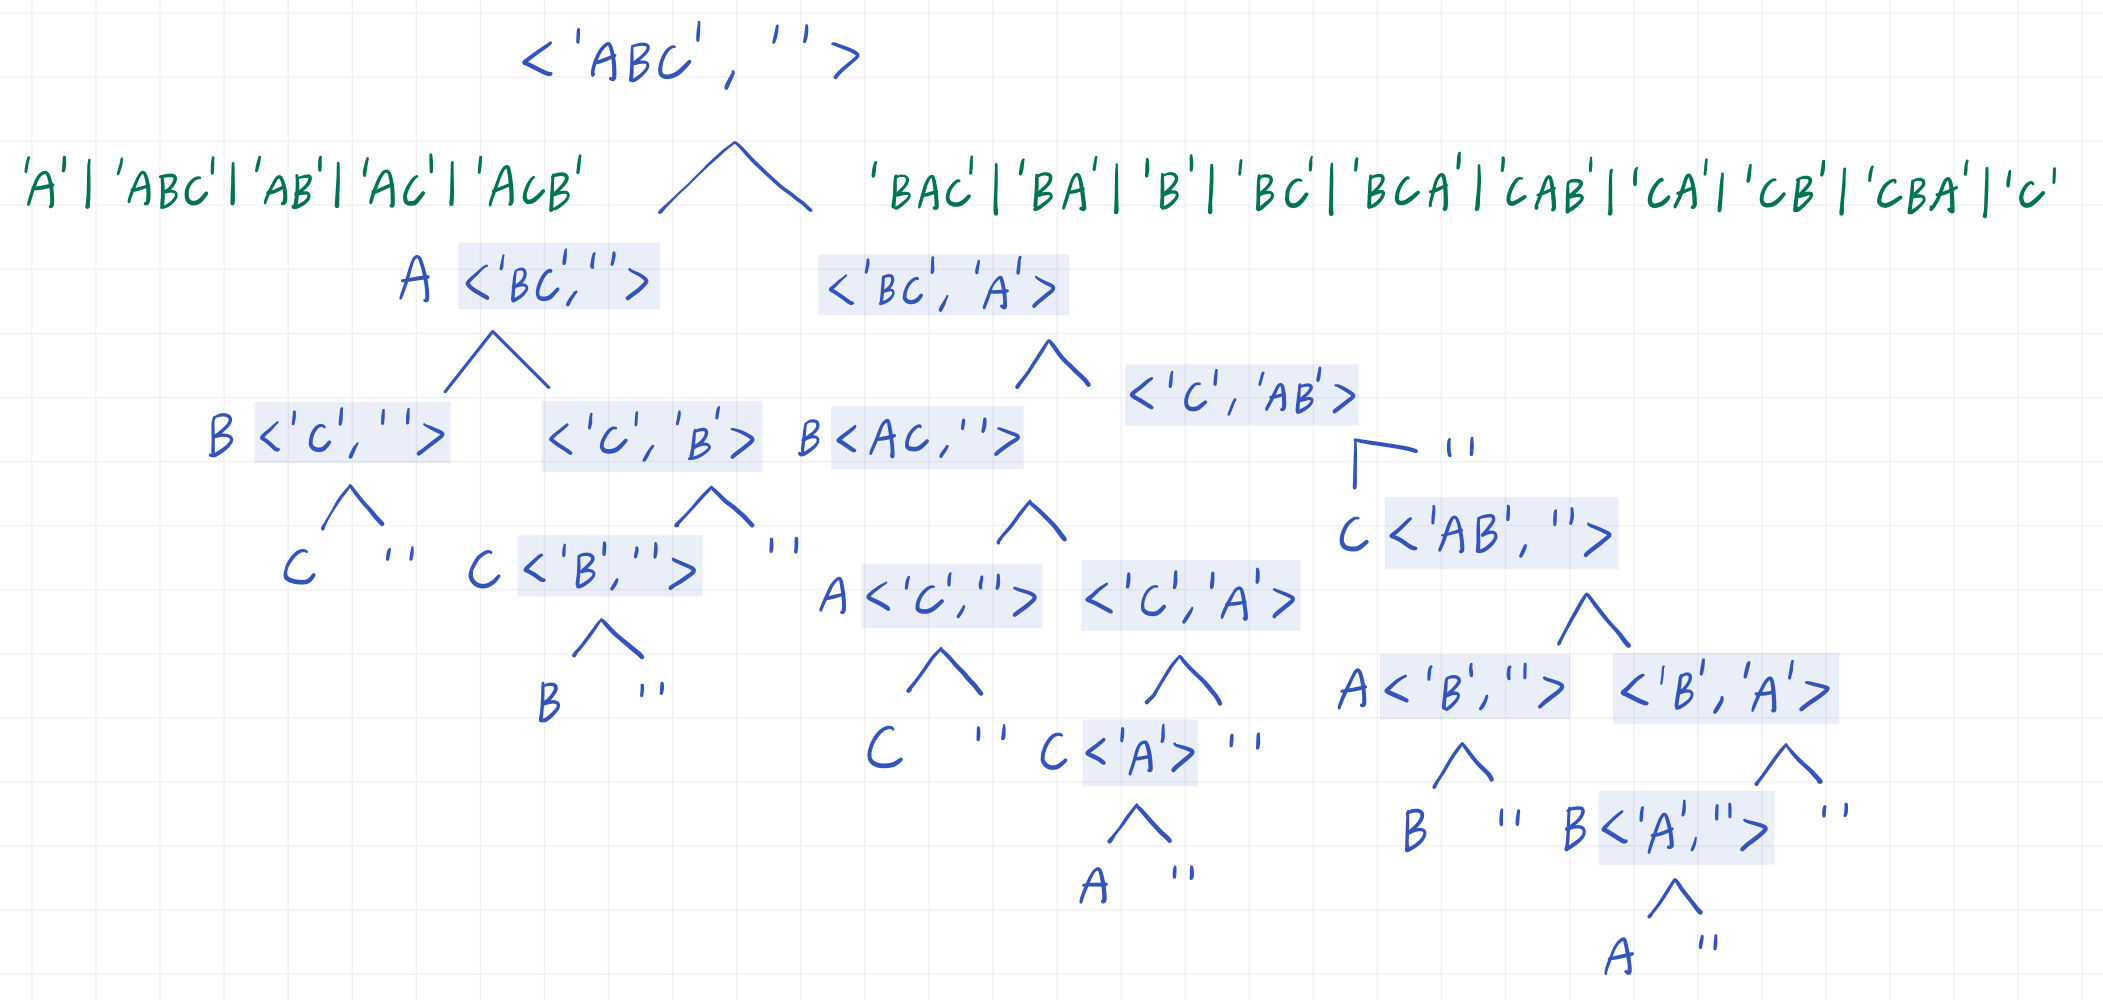 <'ABC', ''>
'A' | 'ABC' | 'AB' | 'AC' | 'ACB'
'BAC' | 'BA' | 'B' | 'BC' | 'BCA' | 'CAB' | 'CA' | 'CB' | 'CBA' | 'C'
A <'BC', ''>
<'BC', 'A'>
B <'C', ''>
<'C', 'B'>
B <AC, ''>
<'C', 'AB'>
''
C ''
C <'B', ''> ''
A <'C', ''>
<'C', 'A'>
C <'AB', ''>
B ''
C ''
C <'A'> ''
A <'B', ''>
<'B', 'A'>
A ''
B ''
B <'A', ''> ''
A ''